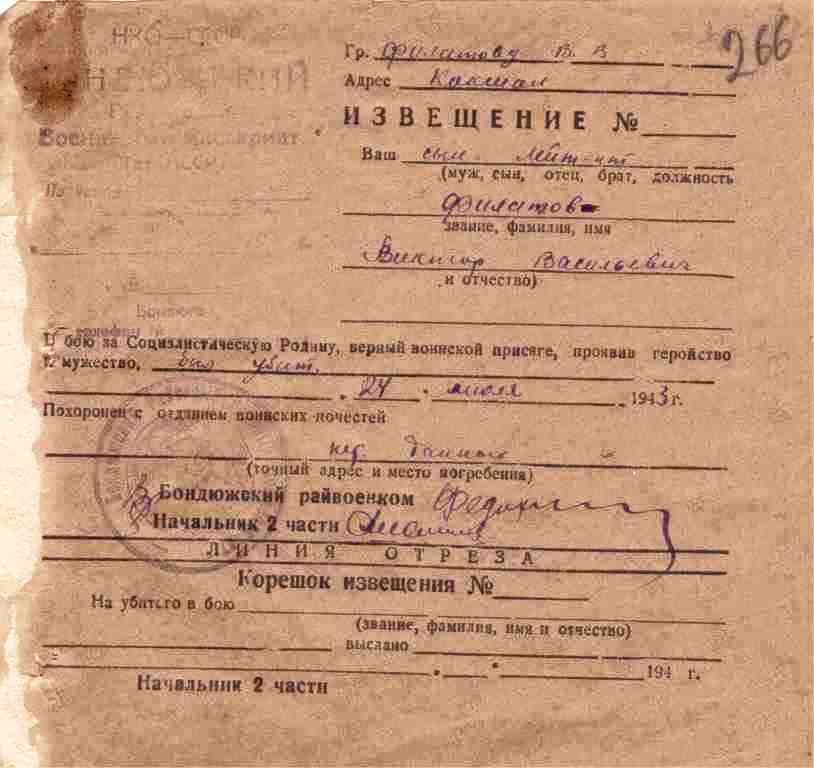 266
НКО—СССР
Гр. Филатову В. В
Адрес Кокшан
ИЗВЕЩЕНИЕ №
Ваш сын лейт-нт
(муж, сын, отец, брат, должность
Филатов
звание, фамилия, имя
Виктор Васильевич
и отчество)
Бондюга
телефон
В бою за Социалистическую Родину, верный воинской присяге, проявив геройство
и мужество, был убит.
24 июля 1943 г.
Похоронен с отданием воинских почестей
нет данных
(точный адрес и место погребения)
Бондюжский райвоенком
Начальник 2 части
ЛИНИЯ ОТРЕЗА
Корешок извещения №
На убитого в бою
(звание, фамилия, имя и отчество)
выслано
194 г.
Начальник 2 части